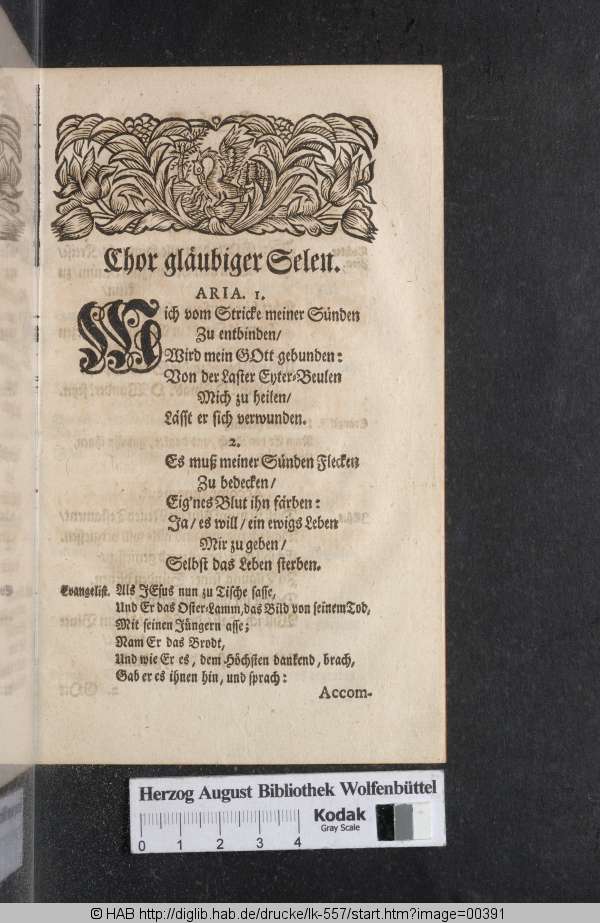 Chor gläubiger Selen.
ARIA. 1.
Mich vom Stricke meiner Sünden
Zu entbinden/
Wird mein GOtt gebunden:
Von der Laster Eyter-Beulen
Mich zu heilen/
Lässt er sich verwunden.
2.
Es muß meiner Sünden Flecken
Zu bedecken/
Eig'nes Blut ihn färben:
Ja/ es will/ ein ewigs Leben
Mir zu geben/
Selbst das Leben sterben.
Evangelist. Als JEsus nun zu Tische sasse,
Und Er das Oster-Lamm, das Bild von seinem Tod,
Mit seinen Jüngern asse;
Nam Er das Brodt,
Und wie Er es, dem Höchsten dankend, brach,
Gab er es ihnen hin, und sprach:
Accom-
Herzog August Bibliothek Wolfenbüttel
Kodak
Gray Scale
0 1 2 3 4
© HAB http://diglib.hab.de/drucke/lk-557/start.htm?image=00391